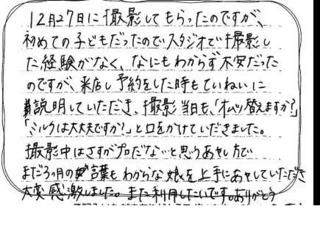 12月27日に撮影してもらったのですが、
初めての子どもだったのでスタジオで撮影し
た経験がなく、なにもわからず不安だった
のですが、来店し予約をした時もていねいに
説明していただき、撮影当日も、「オムツ替えますか?」
「ミルクは大丈夫ですか?」と口をかけていだきました。
撮影中はさすがプロだな〜と思うあやし方で
まだ5ヶ月の言葉もわからな娘を上手にあやしていただき
大変感激しました。また利用したいです。ありがとう